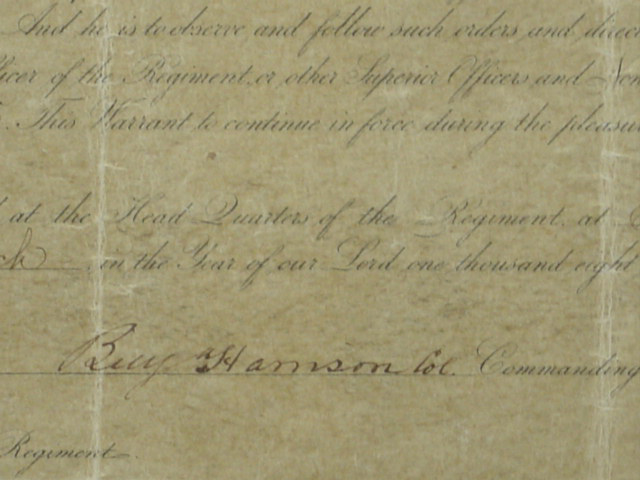 And he is to observe and follow such orders and direc
icer of the Regiment, or other Superior Officers and Non
This Warrant to continue in force during the pleasu
at the Head Quarters of the Regiment, at
ch in the Year of our Lord one thousand eight
Benj Harrison Col. Commanding
Regiment.